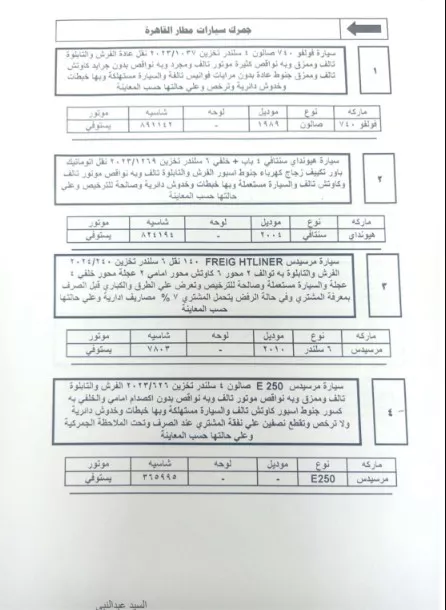 جمرك سيارات مطار القاهرة
١
سيارة فولفو ٧٤٠ صالون ٤ سلندر تخزين ٢٠٢٣/١٠٣٧ نقل عادة الفرش والتابلوة
تالف وممزق وبه نواقص كثيرة موتور تالف ومجرد وبه نواقص بدون جرايد كاوتش
تالف وممزق جنوط عادة بدون مرايات فوانيس تالفة والسيارة مستهلكة وبها خبطات
وخدوش دائرية وترخص وعلي حالتها حسب المعاينة
ماركه نوع موديل لوحه شاسيه موتور
فولفو ٧٤٠ صالون ١٩٨٩ - ٨٩١١٤٢ يستوفي
٢
سيارة هيونداي سنتافي ٤ باب + خلفي ٦ سلندر تخزين ٢٠٢٣/١٢٦٩ نقل اتوماتيك
باور تكييف زجاج كهرباء جنوط اسبور الفرش والتابلوة تالف وبه نواقص موتور تالف
وكاوتش تالف والسيارة مستعملة وبها خبطات وخدوش دائرية وصالحة للترخيص وعلي
حالتها حسب المعاينة
ماركه نوع موديل لوحه شاسيه موتور
هيونداي سنتافي ٢٠٠٤ - ٨٢٤١٩٤ يستوفي
٣
سيارة مرسيدس FREIG HTLINER ١٤٠ نقل ٦ سلندر تخزين ٢٠٢٤/٢٤٠
الفرش والتابلوة به توالف ٢ محور ٦ كاوتش محور امامي ٢ عجلة محور خلفي ٤
عجلة والسيارة مستعملة وصالحة للترخيص وتعرض علي الطرق والكباري قبل الصرف
بمعرفة المشتري وفي حالة الرفض يتحمل المشتري ٧ % مصاريف ادارية وعلي حالتها
حسب المعاينة
ماركه نوع موديل لوحه شاسيه موتور
مرسيدس ٦ سلندر ٢٠١٠ - ٧٨٠٣ يستوفي
٤
سيارة مرسيدس E 250 صالون ٤ سلندر تخزين ٢٠٢٣/٦٢٦ الفرش والتابلوة
تالف وممزق وبه نواقص موتور تالف وبه نواقص بدون اكصدام امامي والخلفي به
كسور جنوط اسبور كاوتش تالف والسيارة مستهلكة وبها خبطات وخدوش دائرية
ولا ترخص وتقطع نصفين علي نفقة المشتري عند الصرف وتحت الملاحظة الجمركية
وعلي حالتها حسب المعاينة
ماركه نوع موديل لوحه شاسيه موتور
مرسيدس E250 - - ٣٦٥٩٩٥ يستوفي
السيد عبدالنبي